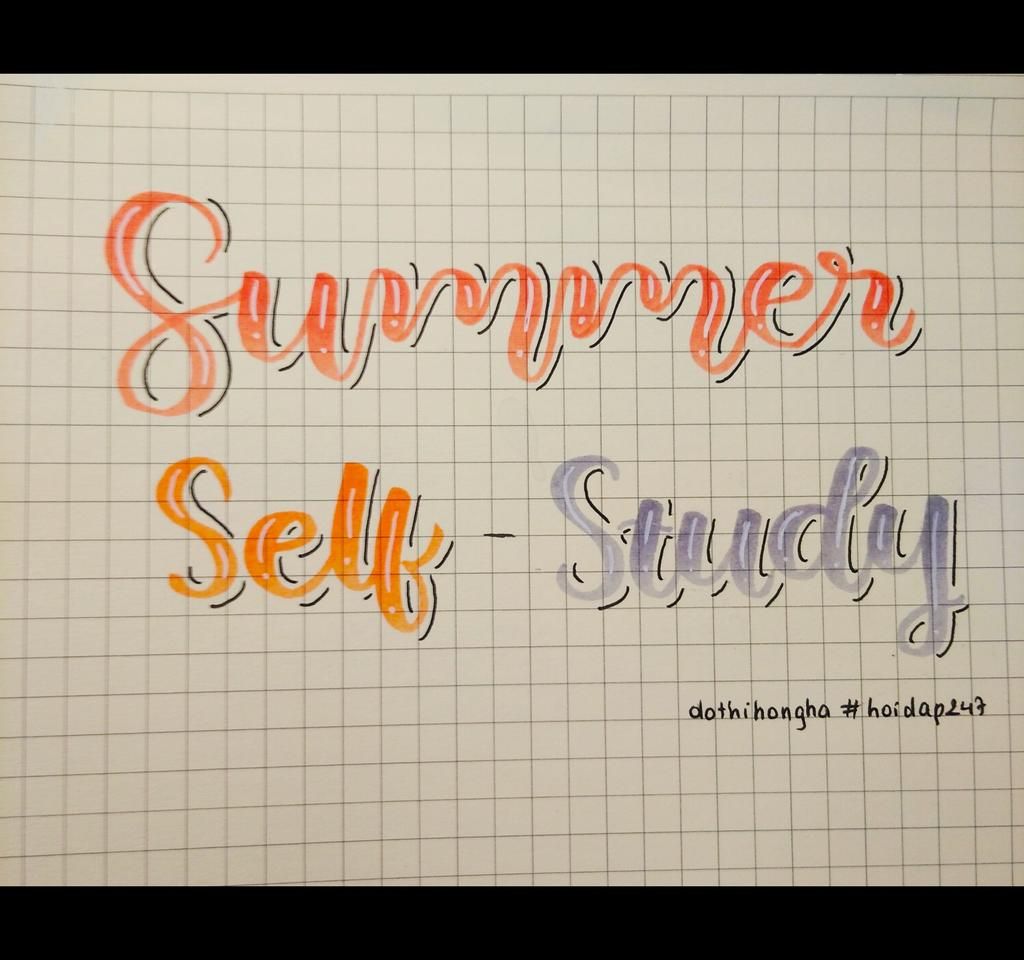 Summer
Self - Study
dothihongha #hoidap247